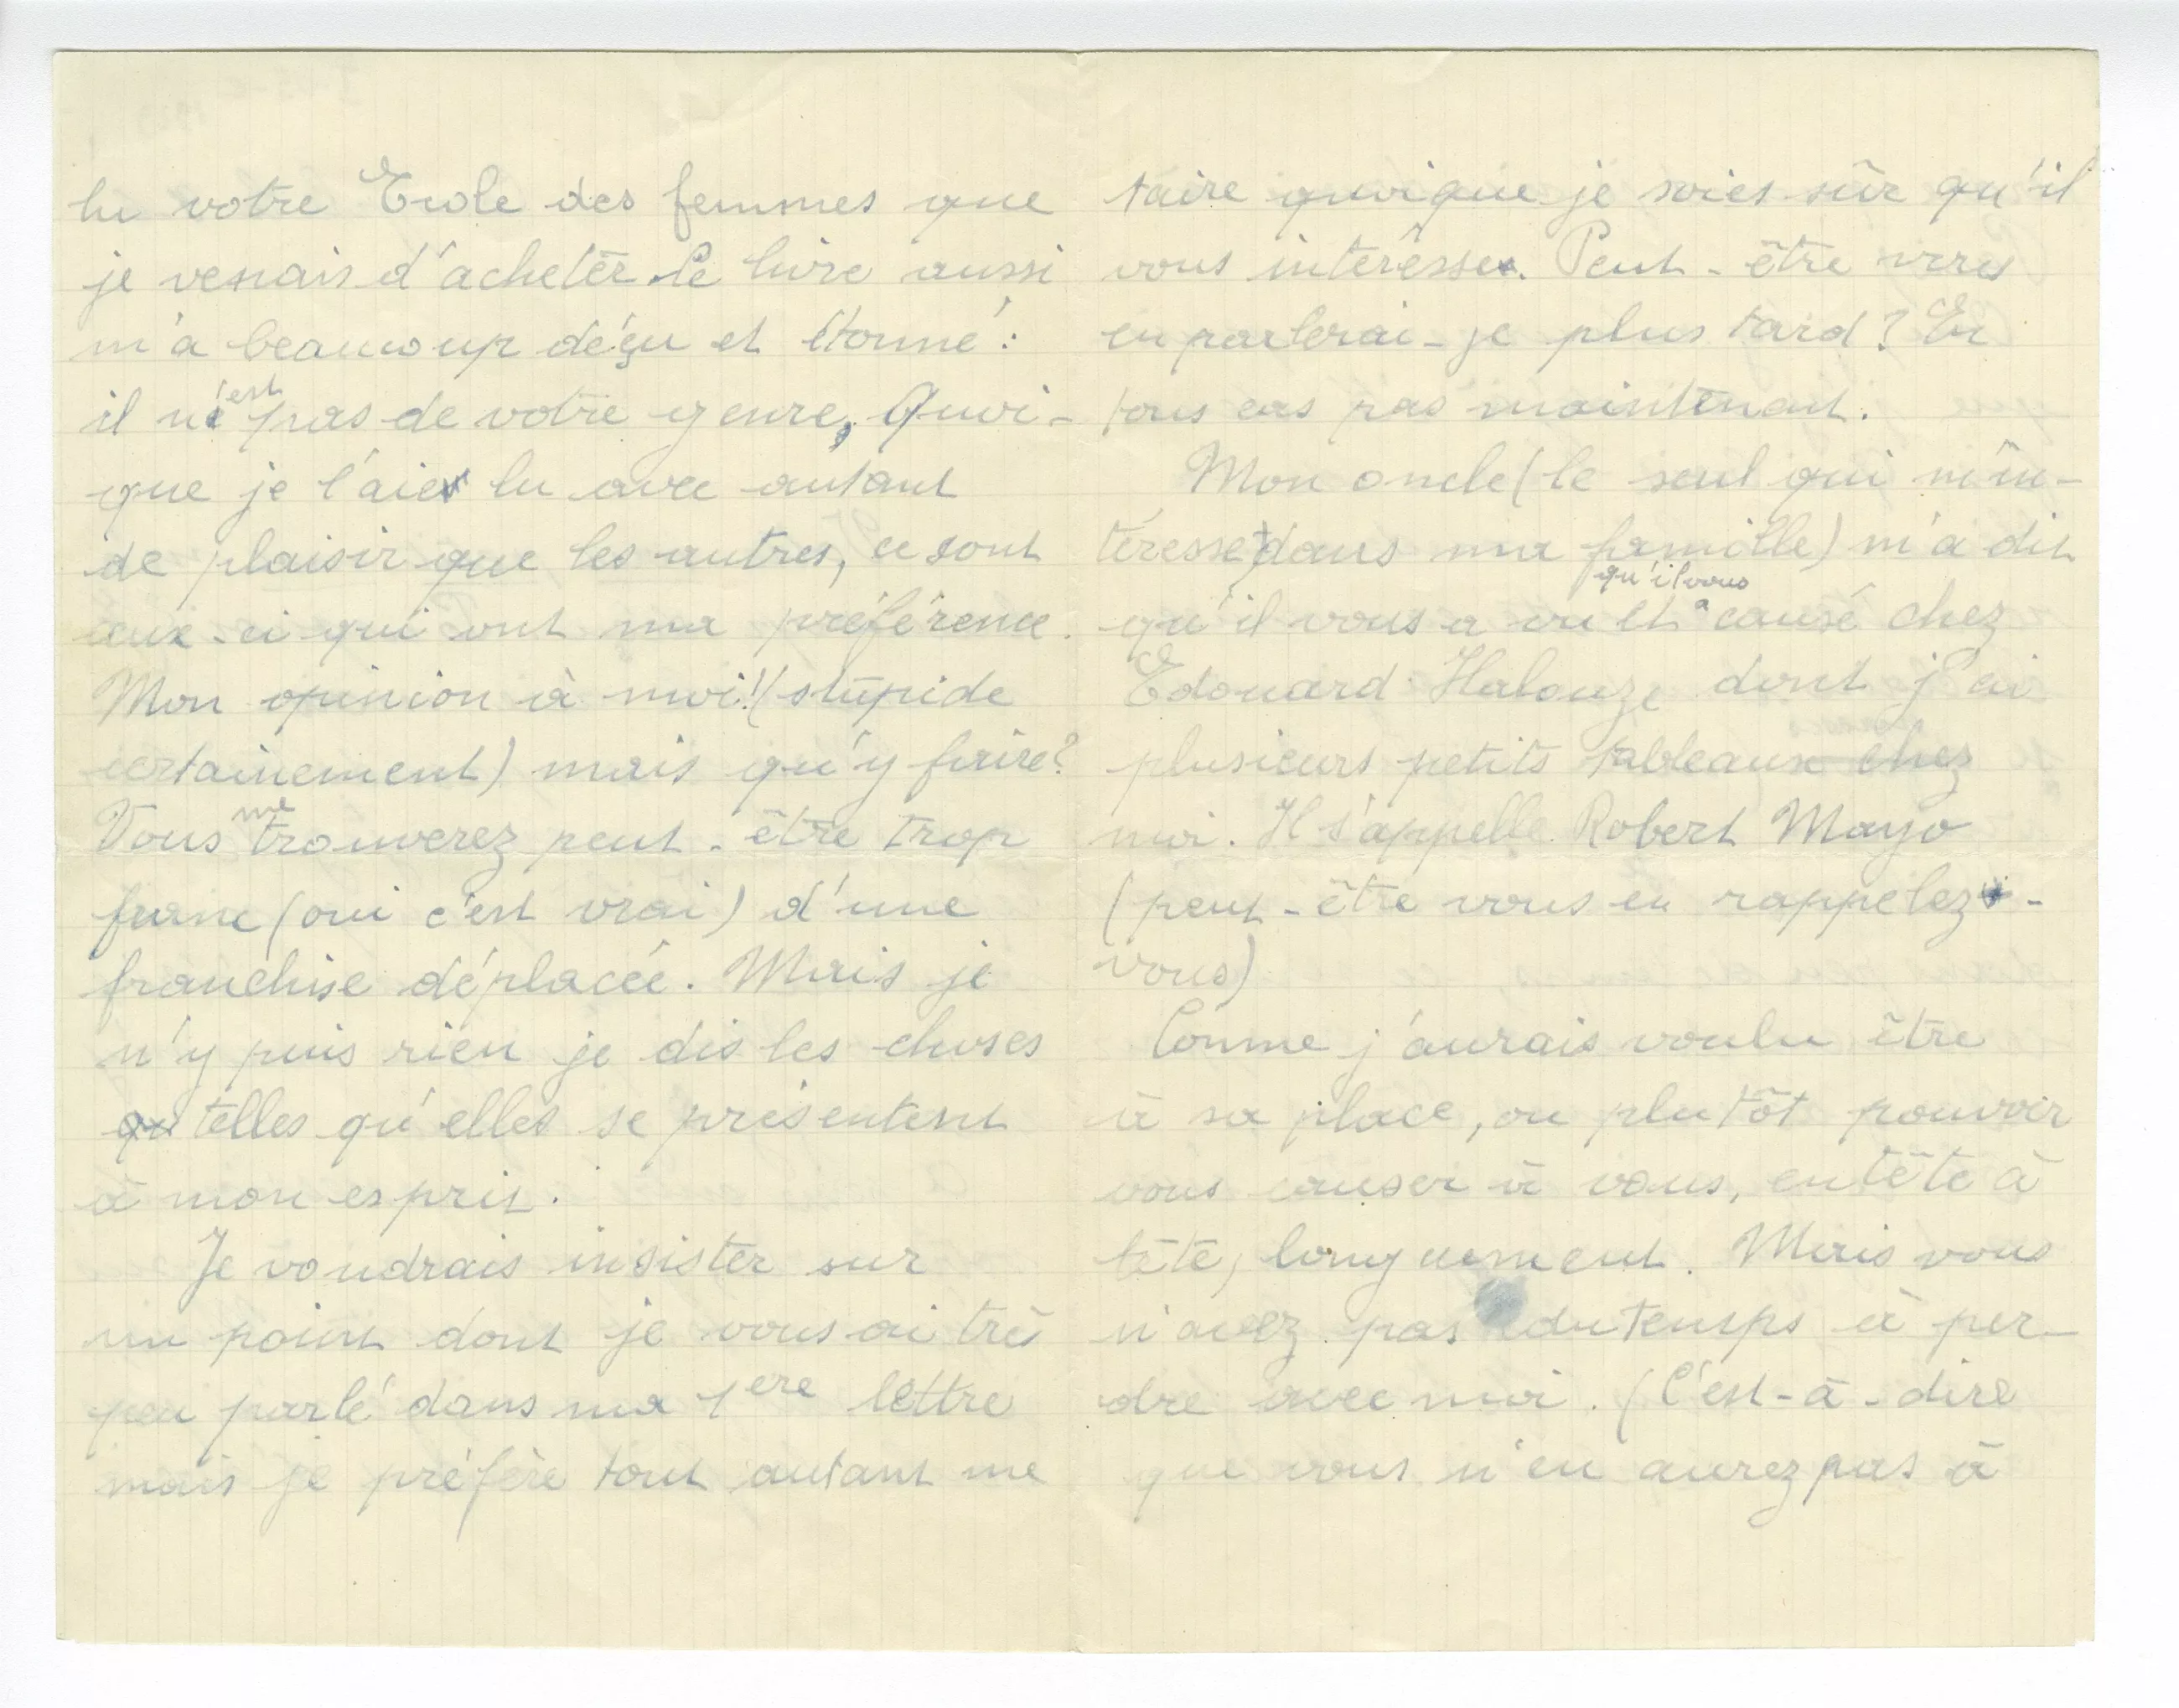 lu votre Ecole des femmes que
je venais d'acheter. Le livre aussi
m'a beaucoup déçu et étonné :
il n'est pas de votre genre, Quoi-
que je l'aie lu avec autant
de plaisir que les autres, ce sont
ceux-ci qui ont ma préférence.
Mon opinion à moi! (stupide
certainement) mais qu'y faire?
Vous me trouverez peut-être trop
franc (oui c'est vrai) d'une
franchise déplacée. Mais je
n'y puis rien je dis les choses
qu telles qu'elles se présentent
à mon esprit.
Je voudrais insister sur
un point dont je vous ai très
peu parlé dans ma 1ere lettre
mais je préfère tout autant me
taire quoique je soies sûr qu'il
vous intéresse. Peut-être vous
en parlerai-je plus tard? En
tous cas pas maintenant.
Mon oncle (le seul qui m'in-
téresse dans ma famille) m'a dit
qu'il vous a vu et qu'il vous a causé chez
Edouard Halouze dont j'ai
plusieurs petits tableaux chez
moi. Il s'appelle Robert Mayo
(peut-être vous en rappelez-
vous)
Comme j'aurais voulu être
à sa place, ou plutôt pouvoir
vous causer à vous, en tête à
tête, longuement. Mais vous
n'avez pas du temps à per-
dre avec moi. (C'est-à-dire
que vous n'en aurez pas à